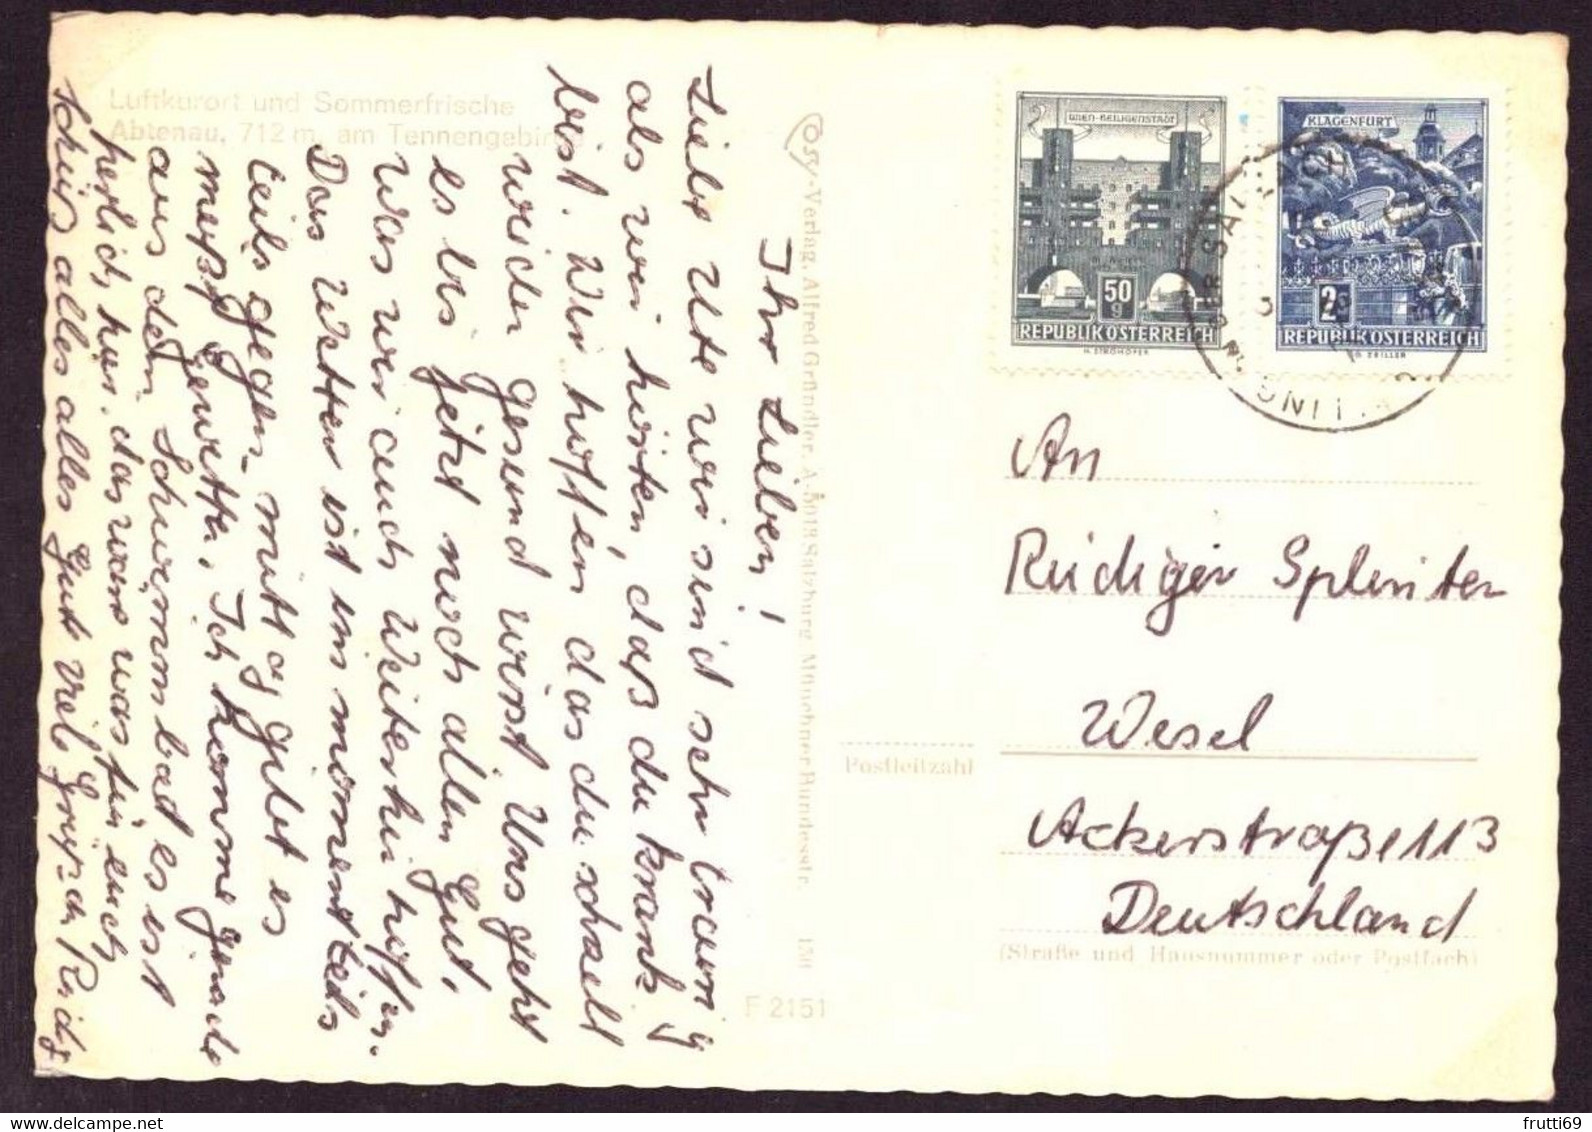 Luftkurort und Sommerfrische
Abtenau, 712 m, am Tennengebirge
Ihr Lieben!
Liebe Ute wir sind sehr traurig
als wir hörten, daß du krank
bist. Wir hoffen das du schnell
wieder gesund wirst. Uns geht
es bis jetzt noch allen gut,
was wir auch weiterhin hoffen.
Das Wetter ist im moment teils
teils gegen mittag gibt es
meist gewitter. Ich komme gerade
aus dem Schwimmbad es ist
herlich hier. das wäre was für euch
Tschüß alles alles Gute viele Grüße
Ossy-Verlag, Alfred Gründler, A-5013 Salzburg, Münchner Bundesstr. 150
F 2151
WIEN-HEILIGENSTADT
50
g
REPUBLIK ÖSTERREICH
H. STROHOFER
KLAGENFURT
2
S
REPUBLIK ÖSTERREICH
An
Rüdiger Splinter
Wesel
Postleitzahl
Ackerstraße 113
Deutschland
(Straße und Hausnummer oder Postfach)
frutti69